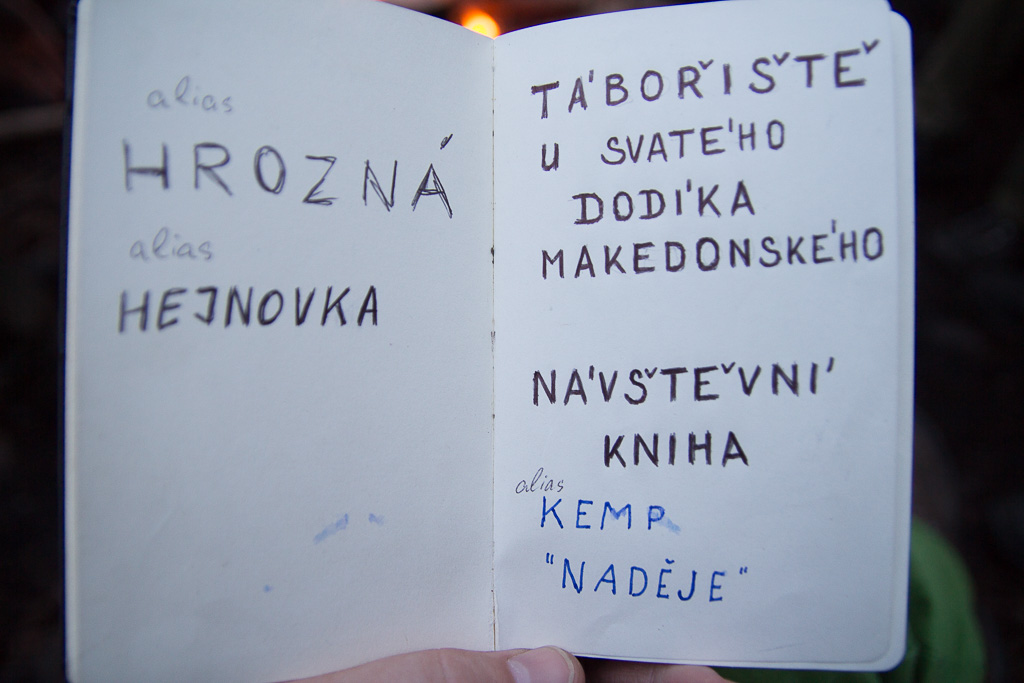 alias
HROZNÁ
alias
HEJNOVKA
TÁBOŘIŠTĚ
U SVATÉHO
DODÍKA
MAKEDONSKÉHO
NÁVŠTĚVNÍ
KNIHA
alias
KEMP
"NADĚJE"